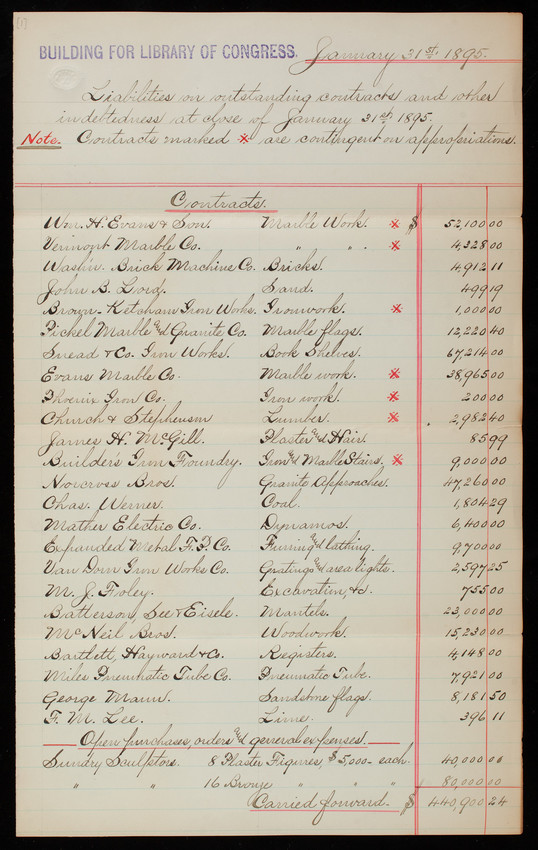 BUILDING FOR LIBRARY OF CONGRESS. January 31st 1895.
Liabilities on outstanding contracts and other
indebtedness at close of January 31st 1895.
Note. Contracts marked x are contingent on appropriations.
Contracts.
Wm. H. Evans & Son. Marble Work. x $ 52,100 00
Vermont Marble Co. " " . x 4,328 00
Wash'n. Brick Machine Co. Bricks. 4,912 11
John B. Lord. Sand. 499 19
Brown-Ketcham Iron Works. Ironwork. x 1,000 00
Pickel Marble and Granite Co. Marble flags. 12,220 40
Snead & Co. Iron Works. Book Shelves. 67,214 00
Evans Marble Co. Marble work. x 38,965 00
Phoenix Iron Co. Iron work. x 200 00
Church & Stephenson Lumber. x 2,982 40
James H. McGill. Plaster and Hair. 85 99
Builder's Iron Foundry. Iron and Marble Stairs. x 9,000 00
Norcross Bros. Granite Approaches. 47,260 00
Chas. Werner. Coal. 1,804 29
Mather Electric Co. Dynamos. 6,400 00
Expanded Metal F. P. Co. Furring and lathing. 9,700 00
Van Dorn Iron Works Co. Gratings and area lights. 2,597 25
M. J. Foley. Excavation, &c. 755 00
Batterson, See & Eisele. Mantels. 23,000 00
McNeil Bros. Woodwork. 15,230 00
Bartlett, Hayward & Co. Registers. 4,148 00
Miles Pneumatic Tube Co. Pneumatic Tube. 7,921 00
George Mann. Sandstone flags. 8,181 50
F. M. Lee. Lime. 396 11
Open purchases, orders and general expenses.
Sundry Sculptors. 8 Plaster Figures $5,000- each. 40,000 00
" " 16 Bronze " " " 80,000 00
Carried forward. $ 440,900 24